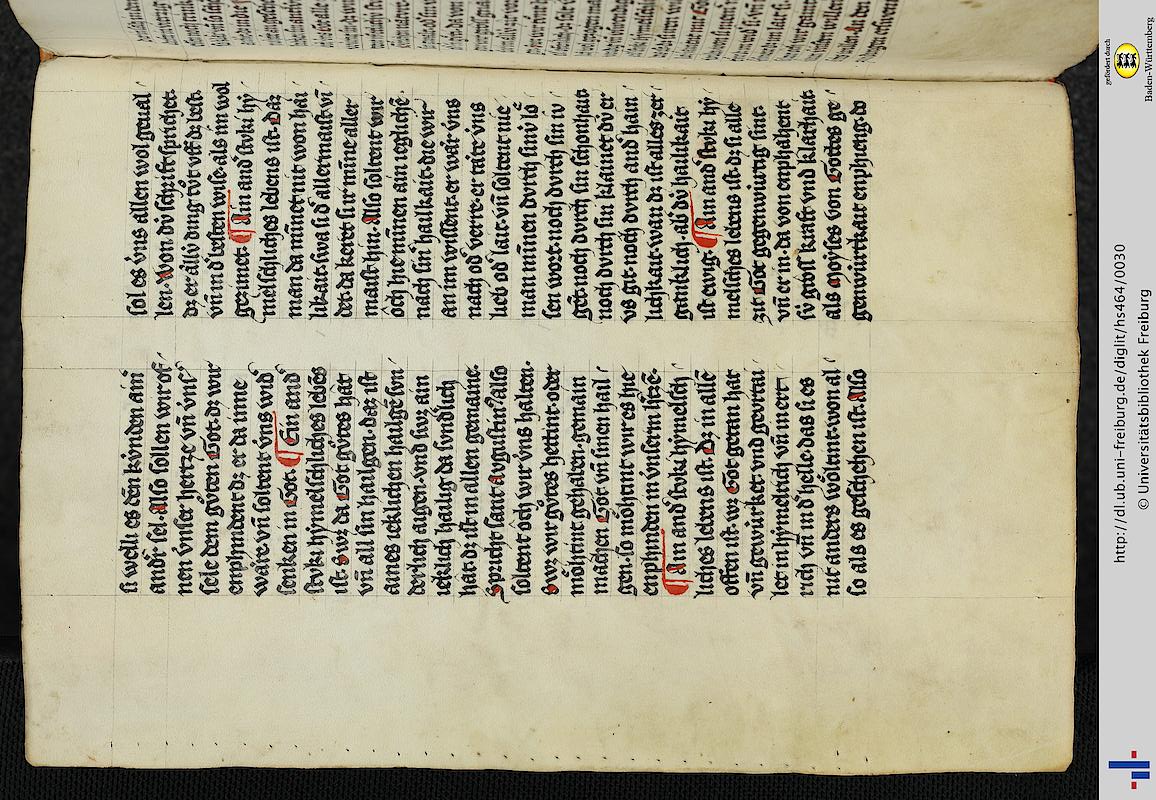 si welli es dēn kv́nden ainī
andr̄ sel. Also sollen wir of⸗
nen v́nser hertze vn̄ v́ns̄
sele dem gv̊ten Got. dz wir
enphindent dz er da inne
wāre. vn̄ soltent v́ns wid̄
senken in Got ¶ Ein and̄
stv́ki hymelschliches lebēs
ist. Swz da Got gv̊tes hat
vn̄ all sin hailgen. daz ist
aines ieklichen hailgē svn
derlich aigen. vnd swz ain
ieklich hailig da svndlich
hat. dz ist in allen gemaine.
Spricht sant Avgustin? Also
soltent och wir v́ns halten.
Swz wir gv̊tes hettint. oder
mo̊htint gehaben. gemain
machen Got vn̄ sinen hail
gen. so mo̊htint wir es hie
enphinden in v́nserm h̄tzē.
¶ Ain and̄ stv́ki hymelsch
liches lebens ist. Dz in allē
offen ist. wz Got getan hat
vn̄ gewúrket vnd gevrtai
let in hymelrich vn̄ in ert
rich vn̄ in d̄ helle. das si es
nit anders wo̊ltent. won al
so als es geschehen ist. Also
sol es v́ns allen wol geual
len. Won. dv́ schrift sprichet.
dz er állv́ ding tv̊t vff dz best.
vn̄ in d̄ besten wise. als im wol
gezimet. ¶ Ain and̄ stv́ki hy
melschliches lebens ist. Daz
man da mīnet nit won hai
likait. swa si d̄ allermaist vī
det. da keret sin mīne aller
maist hin. Also soltent wir
o̊ch hie mīnen ain ieglichē
nach sin̄ hailkait. die wir
an im wissent. er wār v́ns
nach od̄ verre. er tāte v́ns
lieb od̄ lait. vn̄ soltent nie
man mīnen dvrch sinv́ lō
sen wort. noch dvrch sin iv
get. noch dvrch sin schonhait
noch dvrch sin klainet dv́ er
vs git. noch dvrch and̄ hain
lichkait. wan dz ist alles zer
ganklich. ab̄ dv́ hailikait
ist ewig. ¶ Ain and̄ stv́ki hy
melsches lebens ist. dz si alle
zit Got gegenwúrtig sint.
vn̄ er in. da von enphahent
sv́ gross kraft vnd klarhait.
als Moyses von Gottes ge
genwúrtkait enphieng. do
http://dl.ub.uni-freiburg.de/diglit/hs464/0030
© Universitätsbibliothek Freiburg
gefördert durch
Baden-Württemberg